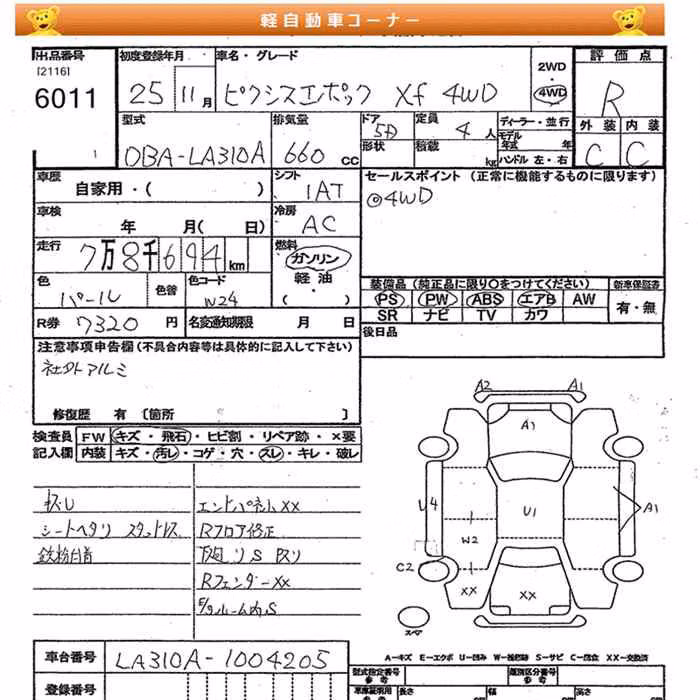 軽自動車コーナー
出品番号
[2116]
6011
初度登録年月
25 11月
車名・グレード
ピクシスエポック Xf 4WD
2WD
・
4WD
評価点
R
外装 内装
C C
型式
DBA-LA310A
排気量
660 cc
ドア
5D
形状
定員
4 人
積載
kg
ディーラー・並行
モデル
年式 年
ハンドル 左・右
車歴
自家用・( )
シフト
1AT
セールスポイント (正常に機能するものに限ります)
◎4WD
車検
年 月( 日)
冷房
AC
走行
7万8千694km
燃料
ガソリン
軽油
( ・ )
色
パール
色替
色コード
W24
装備品 (純正品に限り○をつけてください)
新車保証書
PS PW ABS エアB AW
有・無
SR ナビ TV カワ
R券 7320 円
名変通知期限 月 日
後日品
注意事項申告欄 (不具合内容等は具体的に記入して下さい)
社外アルミ
修復歴 有 [箇所 ]
検査員
記入欄
FW キズ・飛石・ヒビ割・リペア跡・×要
内装 キズ・汚レ・コゲ・穴・スレ・キレ・破レ
シートヘタリ スタッドレス
鉄粉付着
エンドパネルXX
Rフロア修正
Rフェンダー XX
A2 A1
A1
U4
U1
A1
W2
C2
XX
XX
スペア
A=キズ E=エクボ U=凹み W=補修跡 S=サビ C=腐食 XX=交換済
車台番号
LA310A-1004205
型式指定番号
参考
類別区分番号
参考
登録番号
車庫証明用
参考
長さ
幅
高さ